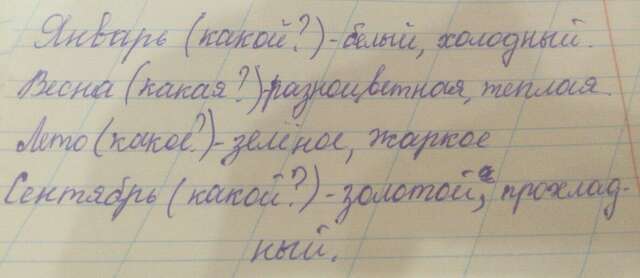 Январь (какой?)-белый, холодный.
Весна (какая?)-разноцветная, теплая.
Лето (какое?)-зелёное, жаркое
Сентябрь (какой?)-золотой, прохлад-
ный.